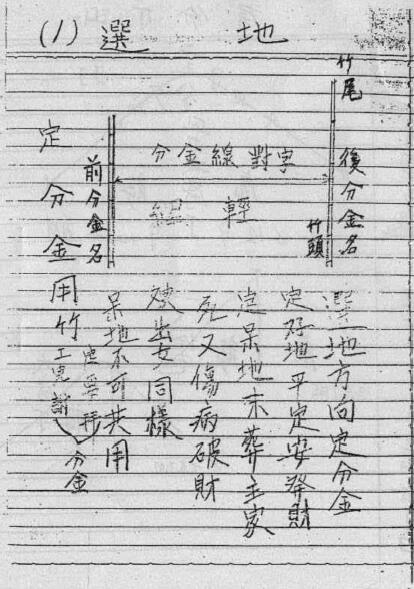 (1) 選 地
竹尾
後分金名
竹頭
分金線對字
輕
前分金名
定分金用竹
選地方向定分金
定好地平定安發財
定呆地未葬主家
死又傷病破財
出女同樣
呆地不可共用
分金